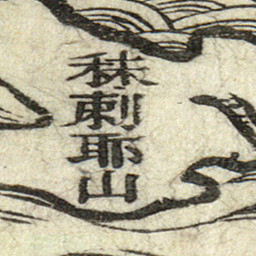 秣剌耶山